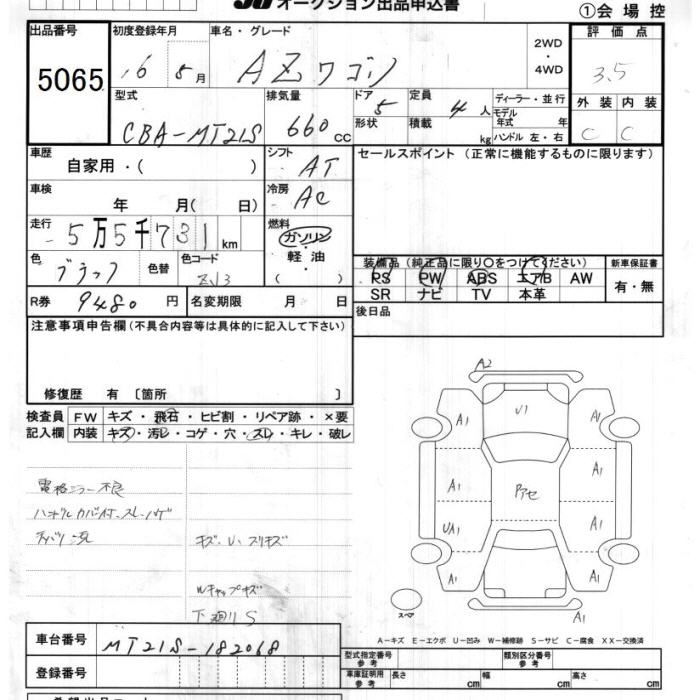 オークション出品申込書
①会場控
出品番号 5065
初度登録年月 16 5月
車名・グレード AZワゴン
2WD・4WD
評価点 3.5
型式 CBA-MT21S
排気量 660cc
ドア 5
形状
定員 4人
積載 kg
ディーラー・並行
モデル年式 年
ハンドル 左・右
外装 C
内装 C
車歴 自家用・( )
シフト AT
セールスポイント (正常に機能するものに限ります)
車検 年 月( 日)
冷房 AC
走行 5万5千731km
燃料 ガソリン・軽油・( )
色 ブラック 色替
色コード ZJ3
装備品 (純正品に限り○をつけてください)
PS PW ABS エアB AW
SR ナビ TV 本革
新車保証書 有・無
R券 9480円
名変期限 月 日
後日品
注意事項申告欄(不具合内容等は具体的に記入して下さい)
修復歴 有 〔箇所 〕
検査員記入欄
FW キズ・飛石・ヒビ割・リペア跡・×要
内装 キズ・汚レ・コゲ・穴・スレ・キレ・破レ
電格ミラー不良
ハンドルカバー付.スレ.ハゲ
キズ.U.スリキズ
Wキャップキズ
下廻りS
A2
U1
A1 A1
A1 A1
Pアセ
UA1 A1
A1 A1
A1
スペア
A-キズ E-エクボ U-凹み W-補修跡 S-サビ C-腐食 XX-交換済
車台番号 MT21S-182068
登録番号
型式指定番号 参考
類別区分番号 参考
車庫証明用 参考 長さ cm 幅 cm 高さ cm